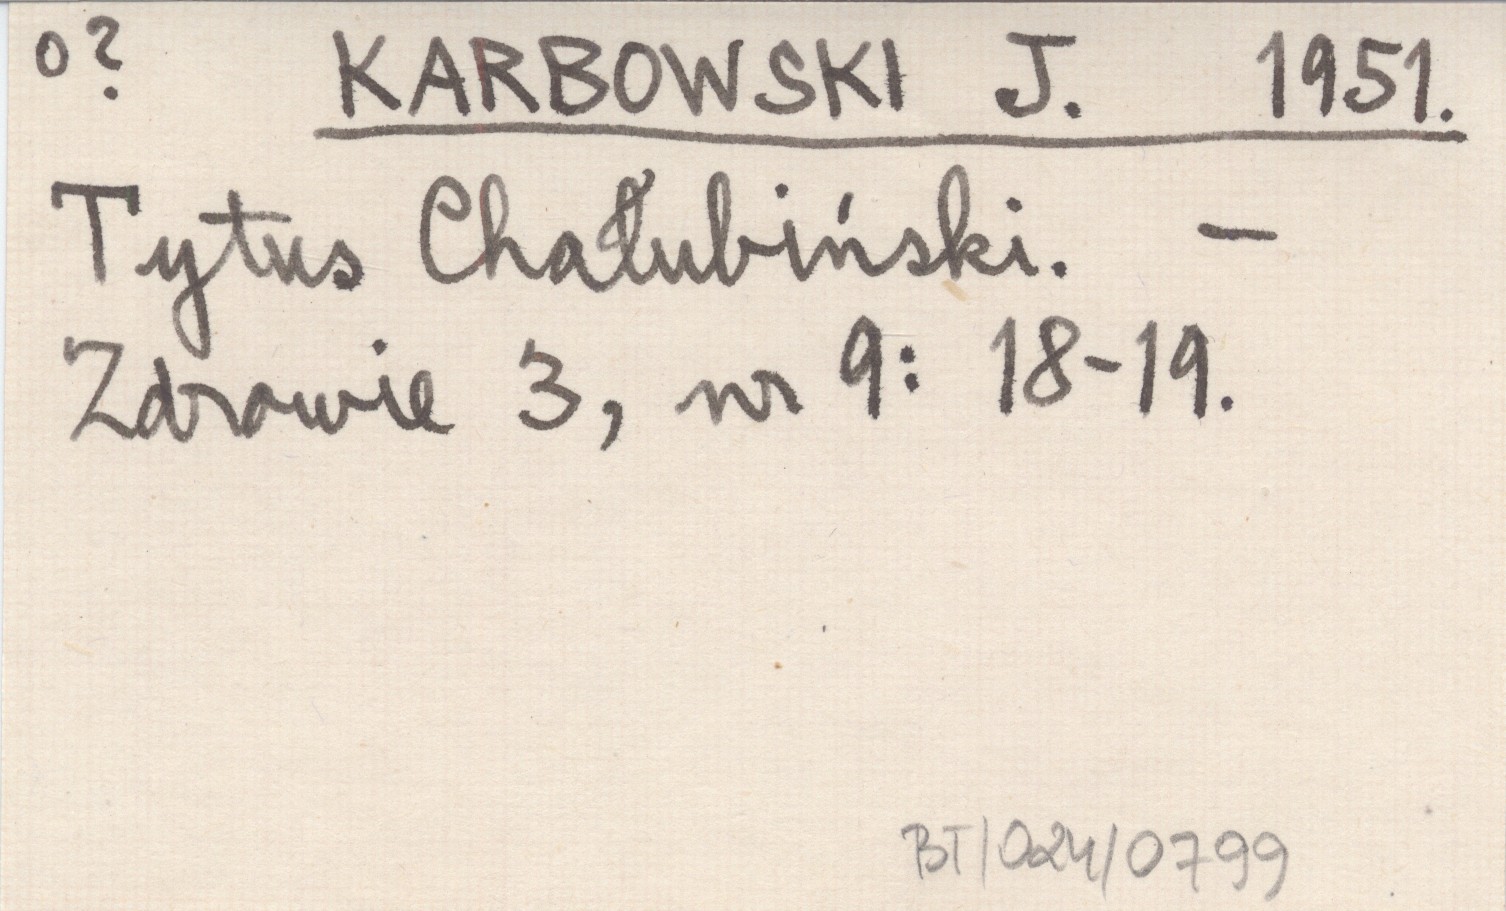 o? KARBOWSKI J. 1951.
Tytus Chałubiński. —
Zdrowie 3, nr 9: 18-19.
BT/024/0799